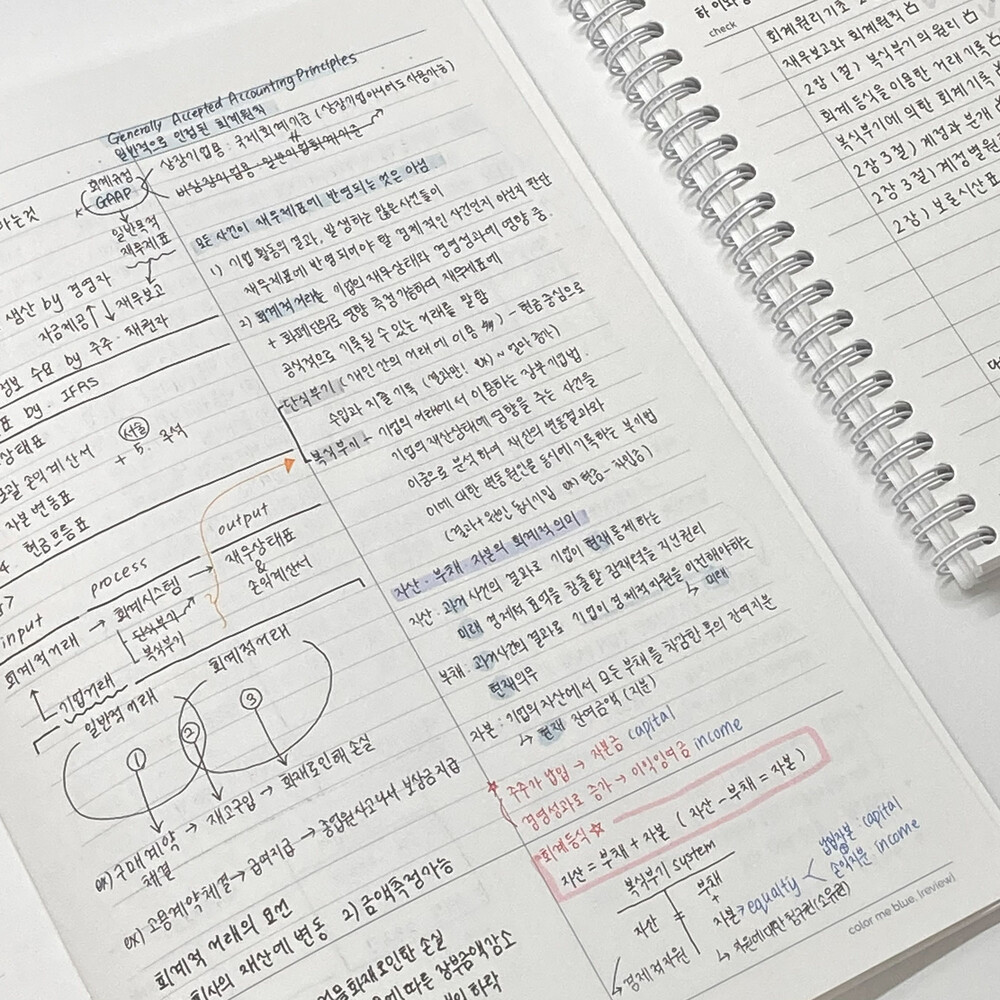 Generally Accepted Accounting Principles
일반적으로 인정된 회계원칙
상장기업용 : 국제회계기준 (상장기업 아니어도 사용가능)
비상장기업용 - 일반기업회계기준
회계규정
GAAP
일반목적
재무제표
하는것
생산 by 경영자
자금제공 재무보고
정보 수요 by 주주 · 채권자
표 by. IFRS
상태표
포괄 손익계산서
+ 5. 주석
자본 변동표
4. 현금흐름표
input
process
output
회계적거래 → 회계시스템 → 재무상태표
&
손익계산서
단식부기
복식부기
기업거래
일반적 거래
회계적거래
①
②
③
ex) 구매계약 → 재고구입 → 화재로인해 손실
체결
ex) 고용계약체결 → 급여지급 → 종업원사고나서 보상금지급
회계적 거래의 요건
회사의 재산에 변동 2) 금액측정가능
화재로인한 손실
에 따른 장부금액감소
의 하락
모든 사건이 재무제표에 반영되는 것은 아님
1) 기업 활동의 결과, 발생하는 많은사건들이
재무제표에 반영되어야 할 경제적인 사건인지 아닌지 판단
2) 회계적거래는 기업의 재무상태와 경영성과에 영향 줌.
+ 화폐단위로 영향 측정 가능하여 재무제표에
공식적으로 기록될 수 있는 거래를 말함
단식부기 (개인 간의 거래에 이용) - 현금중심으로
수입과 지출 기록 (결과만! ex) ~ 얼마 증가)
복식부기 - 기업의 거래에서 이용하는 장부기입법.
기업의 재산상태에 영향을 주는 사건을
이중으로 분석하여 재산의 변동결과와
이에 대한 변동원인을 동시에 기록하는 부기법
(결과+원인 동시기입 ex) 현금 - 차입금)
자산 · 부채 · 자본의 회계적 의미
자산 : 과거 사건의 결과로 기업이 현재 통제하는
미래 경제적 효익을 창출할 잠재력을 지닌권리
부채 : 과거사건의 결과로 기업이 경제적자원을 이전해야하는
현재의무
↳ 미래
자본 : 기업의 자산에서 모든 부채를 차감한 후의 잔여지분
↳ 현재 잔여금액 (지분)
주주가 납입 → 자본금 capital
경영성과로 증가 → 이익잉여금 income
회계등식 ☆
자산 = 부채 + 자본 ( 자산 - 부채 = 자본 )
복식부기 system
자산 = 부채
+
자본 > equality
납입자본 : capital
⊕
손익지분 income
경제적자원
↳ 자원에대한 청구권(소유권)
color me blue. [review]
check
회계원리기초
재무보고와 회계원칙
2장 1절) 복식부기의 원리
회계 등식을 이용한 거래기록
복식부기에 의한 회계기록
2장 2절) 계정과 분개
2장 3절) 계정별원
2장 ) 보론시산표